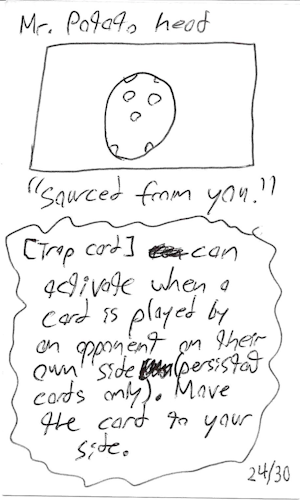 Mr. Potato head
"Sourced from you."
[Trap card] can
activate when a
card is played by
an opponent on their
own side (persistant
cards only). Move
the card to your
side.
24/30